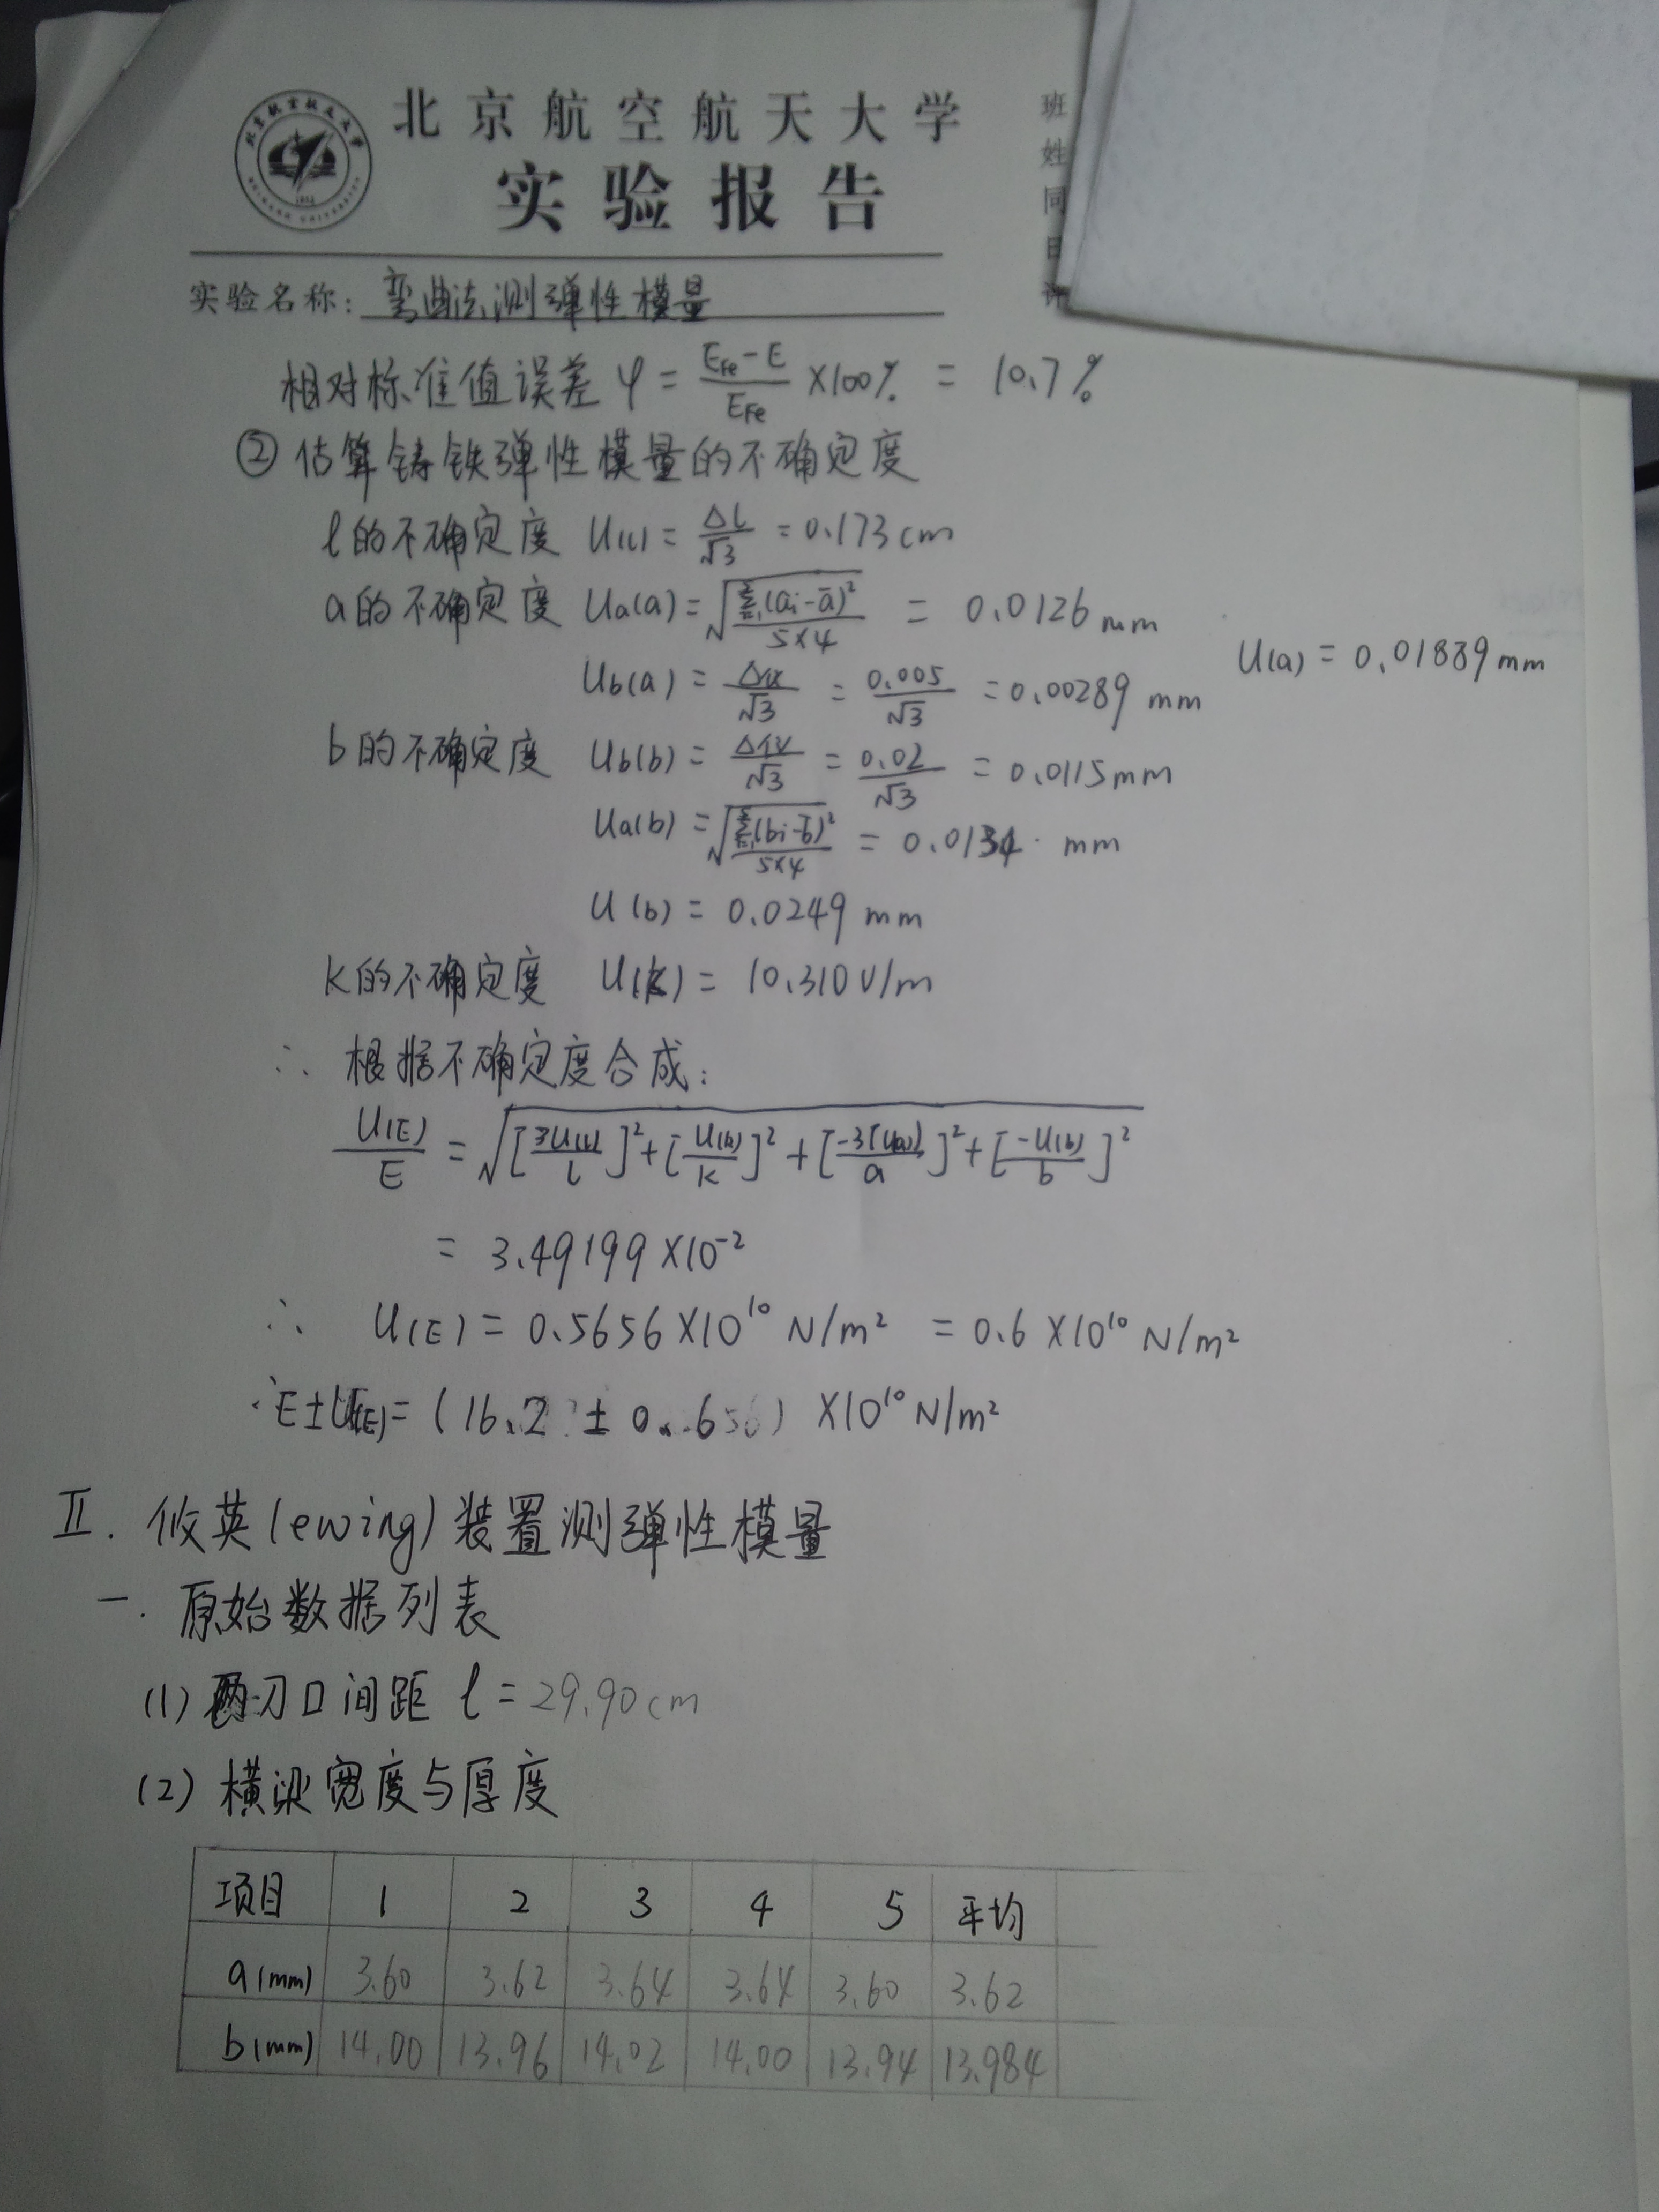 北京航空航天大学
实验报告
班
姓
同
日
评
实验名称: 弯曲法测弹性模量
相对标准值误差 φ = (E_Fe - E)/E_Fe ×100% = 10.7%
② 估算铸铁弹性模量的不确定度
l的不确定度 U(l) = Δl/√3 = 0.173cm
a的不确定度 Ua(a) = √(Σ(ai-ā)²/(5×4)) = 0.0126mm
U(a) = 0.01889mm
Ub(a) = Δ仪/√3 = 0.005/√3 = 0.00289 mm
b的不确定度 Ub(b) = Δ仪/√3 = 0.02/√3 = 0.0115mm
Ua(b) = √(Σ(bi-b̄)²/(5×4)) = 0.0134 mm
U(b) = 0.0249 mm
K的不确定度 U(k) = 10.310V/m
∴ 根据不确定度合成:
U(E)/E = √([3U(l)/l]²+[U(k)/k]²+[-3U(a)/a]²+[-U(b)/b]²)
= 3.49199×10⁻²
∴ U(E) = 0.5656×10¹⁰ N/m² = 0.6×10¹⁰ N/m²
∴ E±U(E) = (16.2 ± 0. ) ×10¹⁰ N/m²
Ⅱ. 攸英(ewing)装置测弹性模量
一. 原始数据列表
(1) 两刀口间距 l = 29.90cm
(2) 横梁宽度与厚度
项目 1 2 3 4 5 平均
a(mm) 3.60 3.62 3.64 3.64 3.60 3.62
b(mm) 14.00 13.96 14.02 14.00 13.94 13.984